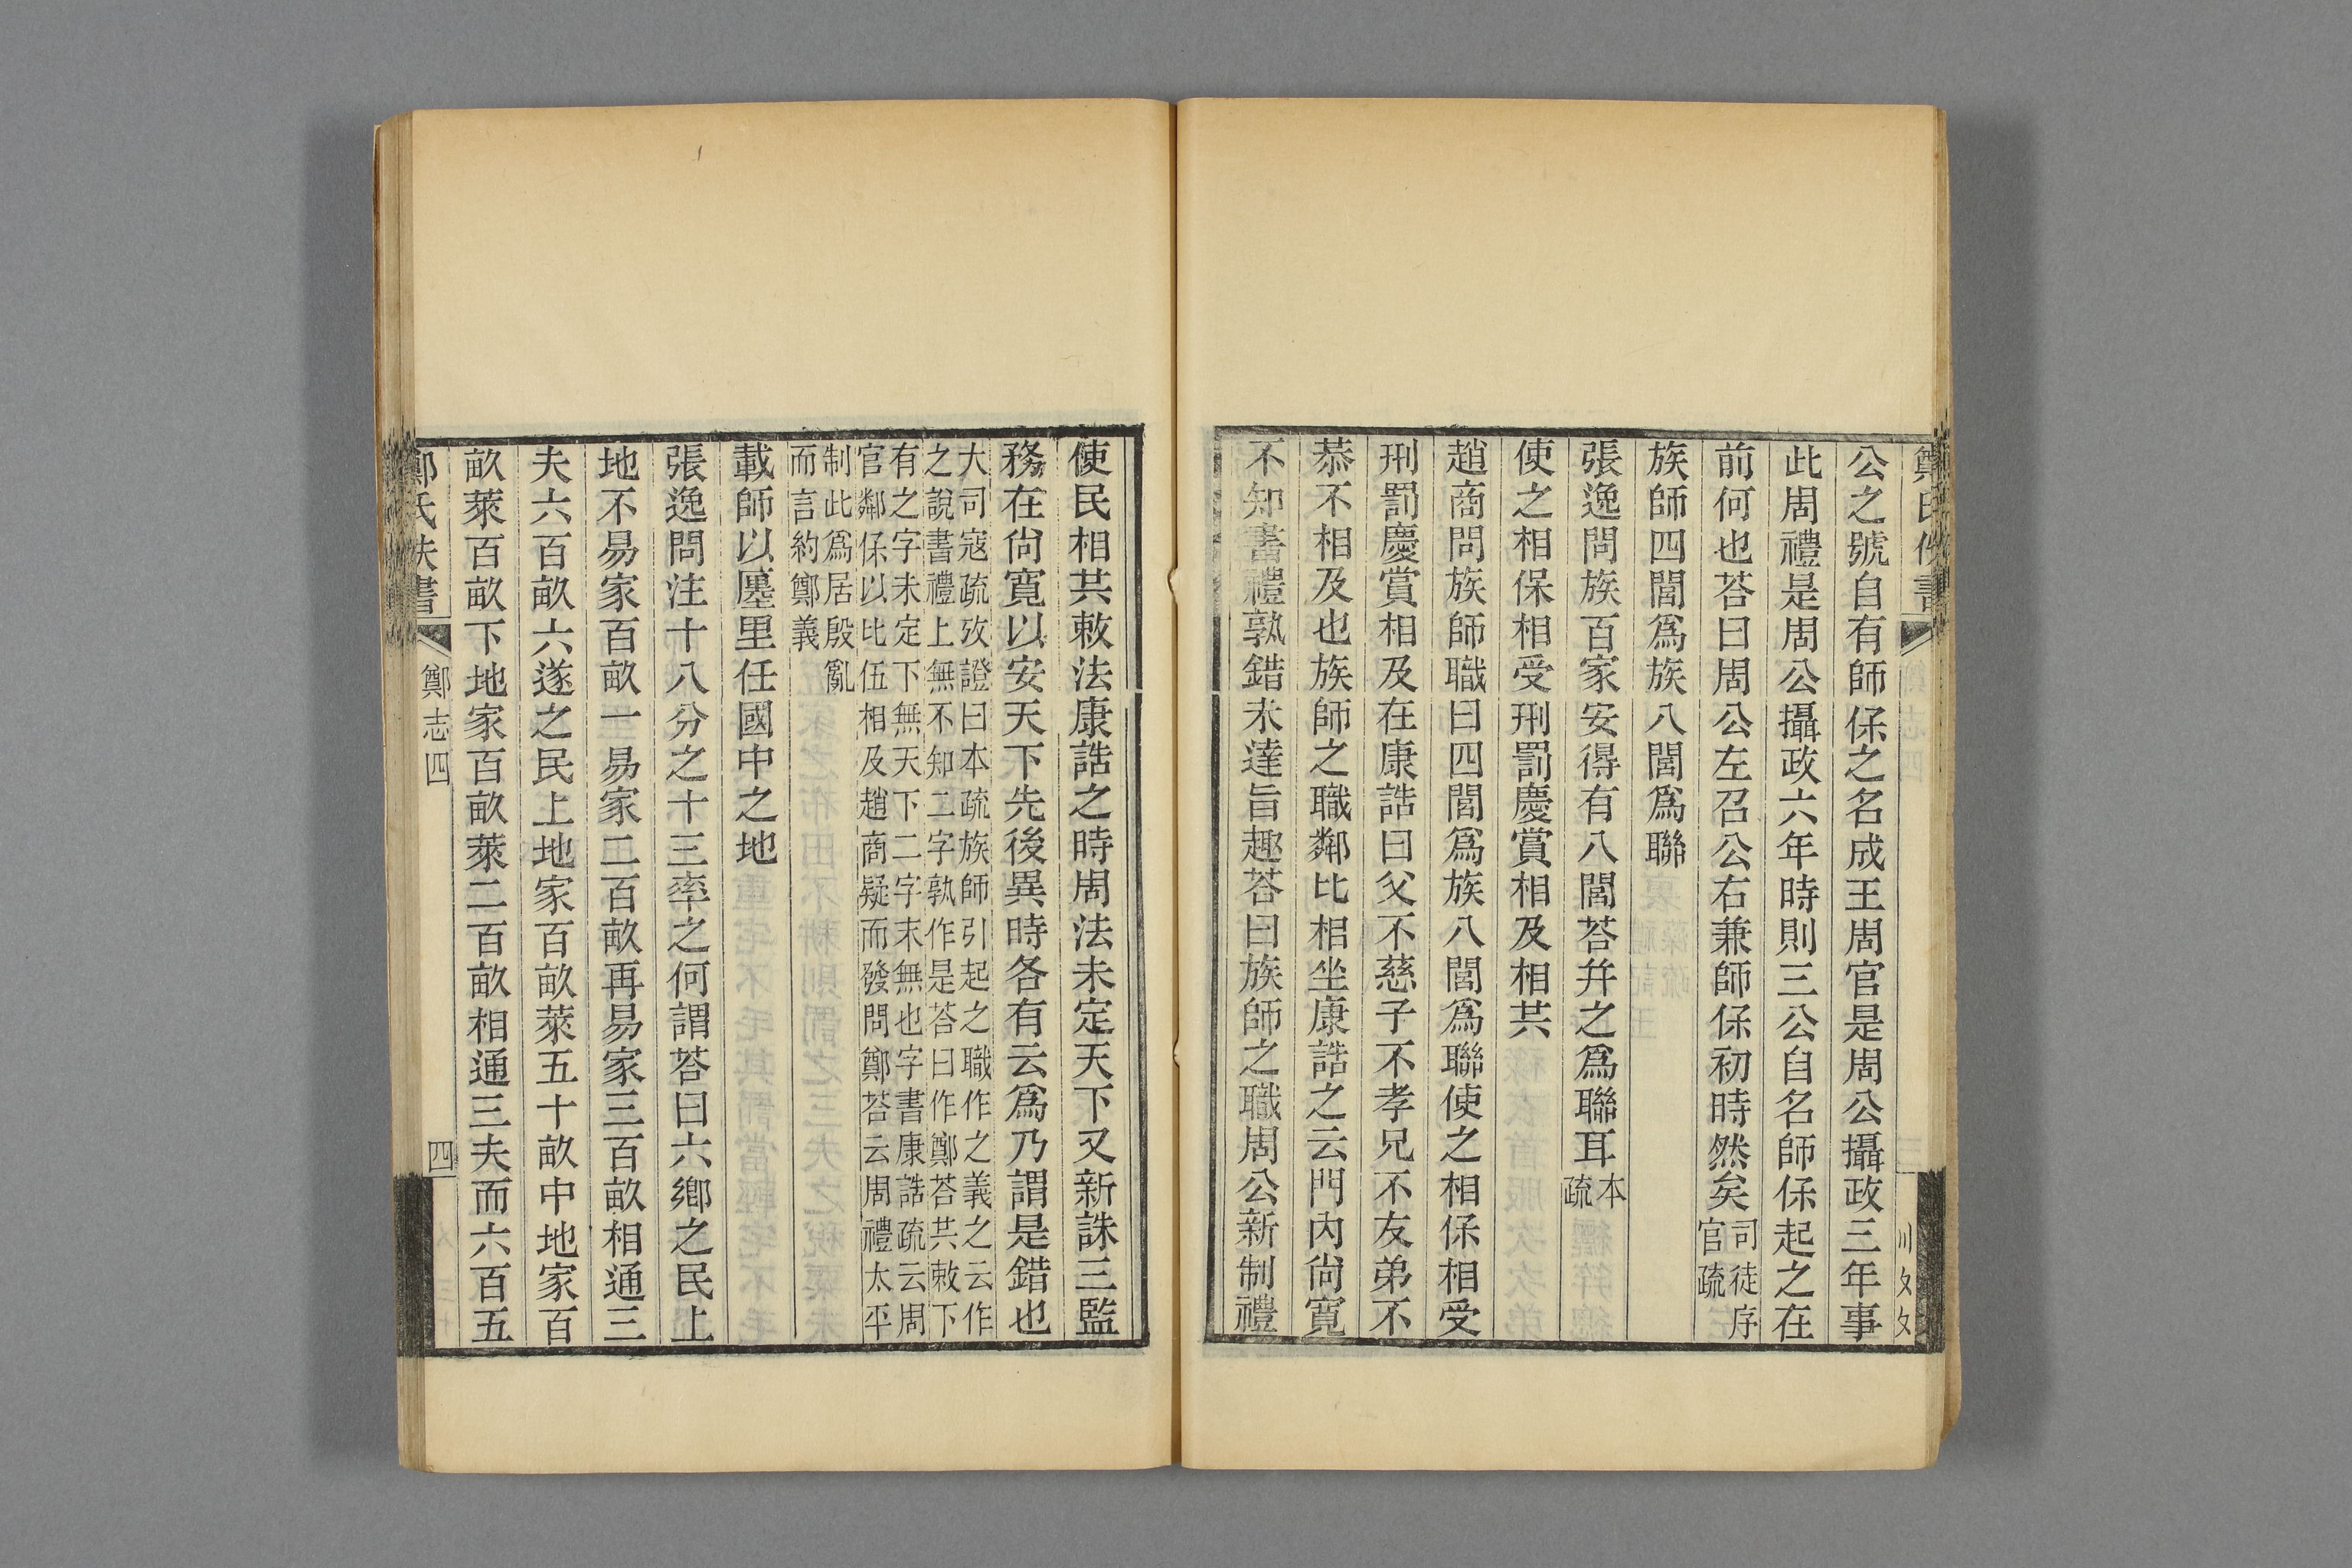 鄭氏佚書
公之號自有師保之名成王周官是周公攝政三年事
此周禮是周公攝政六年時則三公自名師保起之在
前何也荅曰周公左召公右兼師保初時然矣司徒序
官疏
族師四閭爲族八閭爲聯
張逸問族百家安得有八閭荅幷之爲聯耳本
疏
使之相保相受刑罰慶賞相及相共
趙商問族師職曰四閭爲族八閭爲聯使之相保相受
刑罰慶賞相及在康誥曰父不慈子不孝兄不友弟不
恭不相及也族師之職鄰比相坐康誥之云門內尙寬
不知書禮孰錯未達旨趣荅曰族師之職周公新制禮
使民相共敕法康誥之時周法未定天下又新誅三監
務在尙寬以安天下先後異時各有云爲乃謂是錯也
大司寇疏攷證曰本疏族師引起之職作之義之云作
之說書禮上無不知二字孰作是荅曰作鄭荅共敕下
有之字未定下無天下二字末無也字書康誥疏云周
官鄰保以比伍相及趙商疑而發問鄭荅云周禮太平
制此爲居殷亂
而言約鄭義
載師以廛里任國中之地
張逸問注十八分之十三率之何謂荅曰六鄉之民上
地不易家百畝一易家二百畝再易家三百畝相通三
夫六百畝六遂之民上地家百畝萊五十畝中地家百
畝萊百畝下地家百畝萊二百畝相通三夫而六百五
鄭氏佚書
鄭志四
四